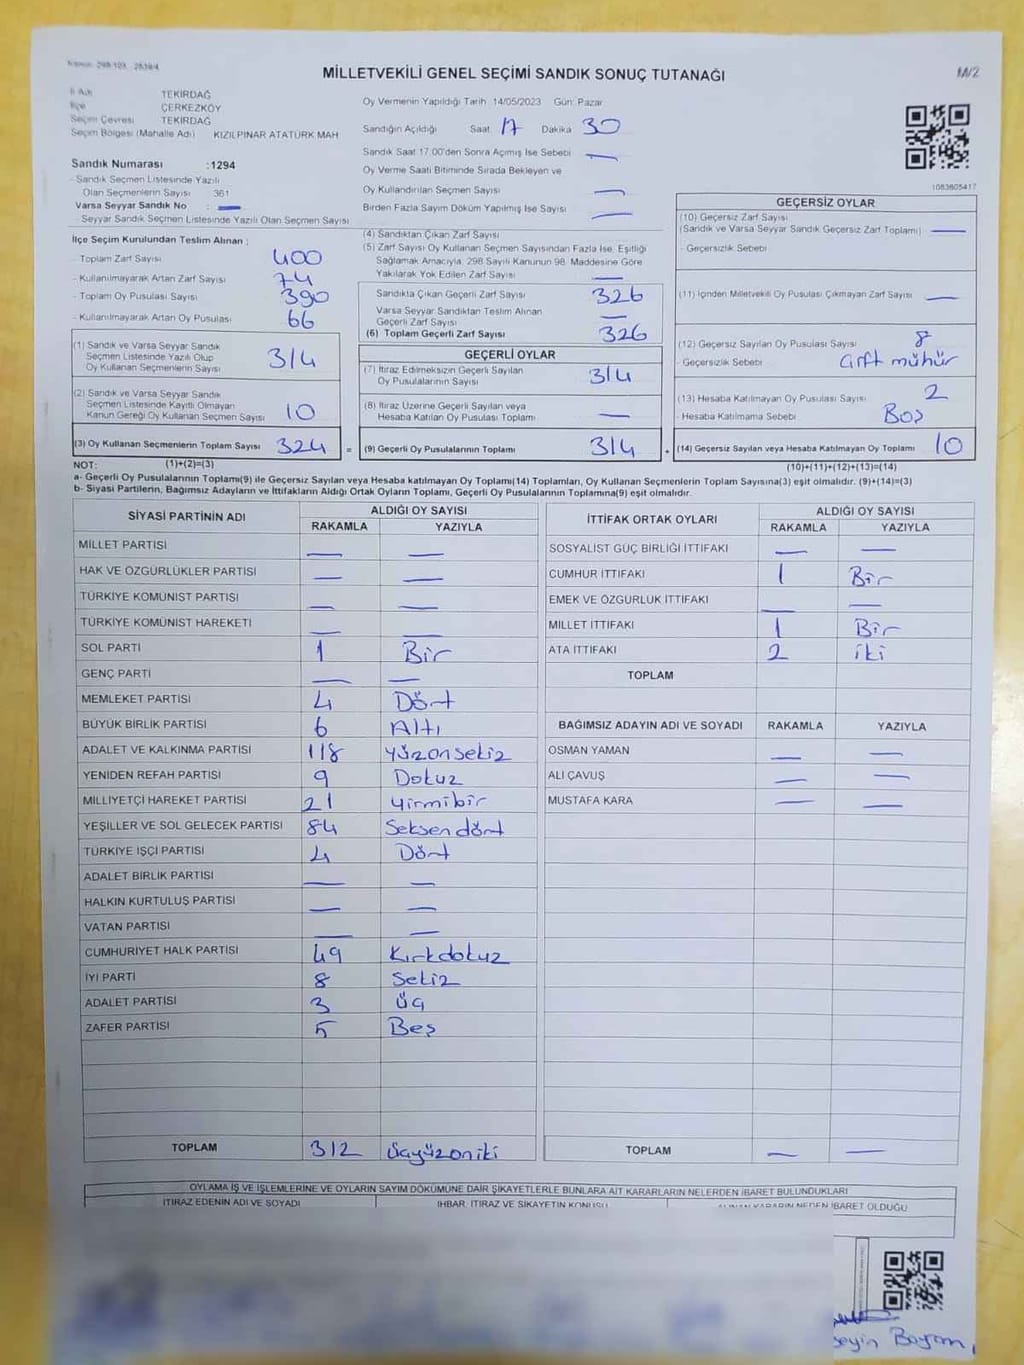 MİLLETVEKİLİ GENEL SEÇİMİ SANDIK SONUÇ TUTANAĞI
M/2
İl Adı TEKİRDAĞ
İlçe ÇERKEZKÖY
Seçim Çevresi TEKİRDAĞ
Seçim Bölgesi (Mahalle Adı) KIZILPINAR ATATÜRK MAH
Sandık Numarası :1294
- Sandık Seçmen Listesinde Yazılı
Olan Seçmenlerin Sayısı 361
Varsa Seyyar Sandık No : —
- Seyyar Sandık Seçmen Listesinde Yazılı Olan Seçmen Sayısı
Oy Vermenin Yapıldığı Tarih 14/05/2023 Gün: Pazar
Sandığın Açıldığı Saat 17 Dakika 30
Sandık Saat 17.00'den Sonra Açılmış İse Sebebi —
Oy Verme Saati Bitiminde Sırada Bekleyen ve
Oy Kullandırılan Seçmen Sayısı —
Birden Fazla Sayım Döküm Yapılmış İse Sayısı —
1083605417
İlçe Seçim Kurulundan Teslim Alınan :
- Toplam Zarf Sayısı 400
- Kullanılmayarak Artan Zarf Sayısı 74
- Toplam Oy Pusulası Sayısı 390
- Kullanılmayarak Artan Oy Pusulası 66
(1) Sandık ve Varsa Seyyar Sandık
Seçmen Listesinde Yazılı Olup
Oy Kullanan Seçmenlerin Sayısı 314
(2) Sandık ve Varsa Seyyar Sandık
Seçmen Listesinde Kayıtlı Olmayan
Kanun Gereği Oy Kullanan Seçmen Sayısı 10
(3) Oy Kullanan Seçmenlerin Toplam Sayısı 324 =
(4) Sandıktan Çıkan Zarf Sayısı
(5) Zarf Sayısı Oy Kullanan Seçmen Sayısından Fazla İse, Eşitliği
Sağlamak Amacıyla, 298 Sayılı Kanunun 98. Maddesine Göre
Yakılarak Yok Edilen Zarf Sayısı —
Sandıkta Çıkan Geçerli Zarf Sayısı 326
Varsa Seyyar Sandıktan Teslim Alınan
Geçerli Zarf Sayısı —
(6) Toplam Geçerli Zarf Sayısı 326
GEÇERLİ OYLAR
(7) İtiraz Edilmeksizin Geçerli Sayılan
Oy Pusulalarının Sayısı 314
(8) İtiraz Üzerine Geçerli Sayılan veya
Hesaba Katılan Oy Pusulası Toplamı —
(9) Geçerli Oy Pusulalarının Toplamı 314 +
GEÇERSİZ OYLAR
(10) Geçersiz Zarf Sayısı
(Sandık ve Varsa Seyyar Sandık Geçersiz Zarf Toplamı) —
- Geçersizlik Sebebi
(11) İçinden Milletvekili Oy Pusulası Çıkmayan Zarf Sayısı —
(12) Geçersiz Sayılan Oy Pusulası Sayısı 8
- Geçersizlik Sebebi Çift mühür
(13) Hesaba Katılmayan Oy Pusulası Sayısı 2
- Hesaba Katılmama Sebebi Boş
(14) Geçersiz Sayılan veya Hesaba Katılmayan Oy Toplamı 10
NOT: (1)+(2)=(3) (10)+(11)+(12)+(13)=(14)
a- Geçerli Oy Pusulalarının Toplamı(9) ile Geçersiz Sayılan veya Hesaba katılmayan Oy Toplamı(14) Toplamları, Oy Kullanan Seçmenlerin Toplam Sayısına(3) eşit olmalıdır. (9)+(14)=(3)
b- Siyasi Partilerin, Bağımsız Adayların ve İttifakların Aldığı Ortak Oyların Toplamı, Geçerli Oy Pusulalarının Toplamına(9) eşit olmalıdır.
SİYASİ PARTİNİN ADI ALDIĞI OY SAYISI
RAKAMLA YAZIYLA
MİLLET PARTİSİ — —
HAK VE ÖZGÜRLÜKLER PARTİSİ — —
TÜRKİYE KOMÜNİST PARTİSİ — —
TÜRKİYE KOMÜNİST HAREKETİ — —
SOL PARTİ 1 Bir
GENÇ PARTİ — —
MEMLEKET PARTİSİ 4 Dört
BÜYÜK BİRLİK PARTİSİ 6 Altı
ADALET VE KALKINMA PARTİSİ 118 yüzonsekiz
YENİDEN REFAH PARTİSİ 9 Dokuz
MİLLİYETÇİ HAREKET PARTİSİ 21 Yirmibir
YEŞİLLER VE SOL GELECEK PARTİSİ 84 Seksen dört
TÜRKİYE İŞÇİ PARTİSİ 4 Dört
ADALET BİRLİK PARTİSİ — —
HALKIN KURTULUŞ PARTİSİ — —
VATAN PARTİSİ — —
CUMHURİYET HALK PARTİSİ 49 Kırkdokuz
İYİ PARTİ 8 Sekiz
ADALET PARTİSİ 3 Üç
ZAFER PARTİSİ 5 Beş
TOPLAM 312 Üçyüzoniki
İTTİFAK ORTAK OYLARI ALDIĞI OY SAYISI
RAKAMLA YAZIYLA
SOSYALİST GÜÇ BİRLİĞİ İTTİFAKI — —
CUMHUR İTTİFAKI 1 Bir
EMEK VE ÖZGÜRLÜK İTTİFAKI — —
MİLLET İTTİFAKI 1 Bir
ATA İTTİFAKI 2 iki
TOPLAM
BAĞIMSIZ ADAYIN ADI VE SOYADI RAKAMLA YAZIYLA
OSMAN YAMAN — —
ALİ ÇAVUŞ — —
MUSTAFA KARA — —
TOPLAM — —
OYLAMA İŞ VE İŞLEMLERİNE VE OYLARIN SAYIM DÖKÜMÜNE DAİR ŞİKAYETLERLE BUNLARA AİT KARARLARIN NELERDEN İBARET BULUNDUKLARI
İTİRAZ EDENİN ADI VE SOYADI İHBAR, İTİRAZ VE ŞİKAYETİN KONUSU ALINAN KARARIN NEDEN İBARET OLDUĞU